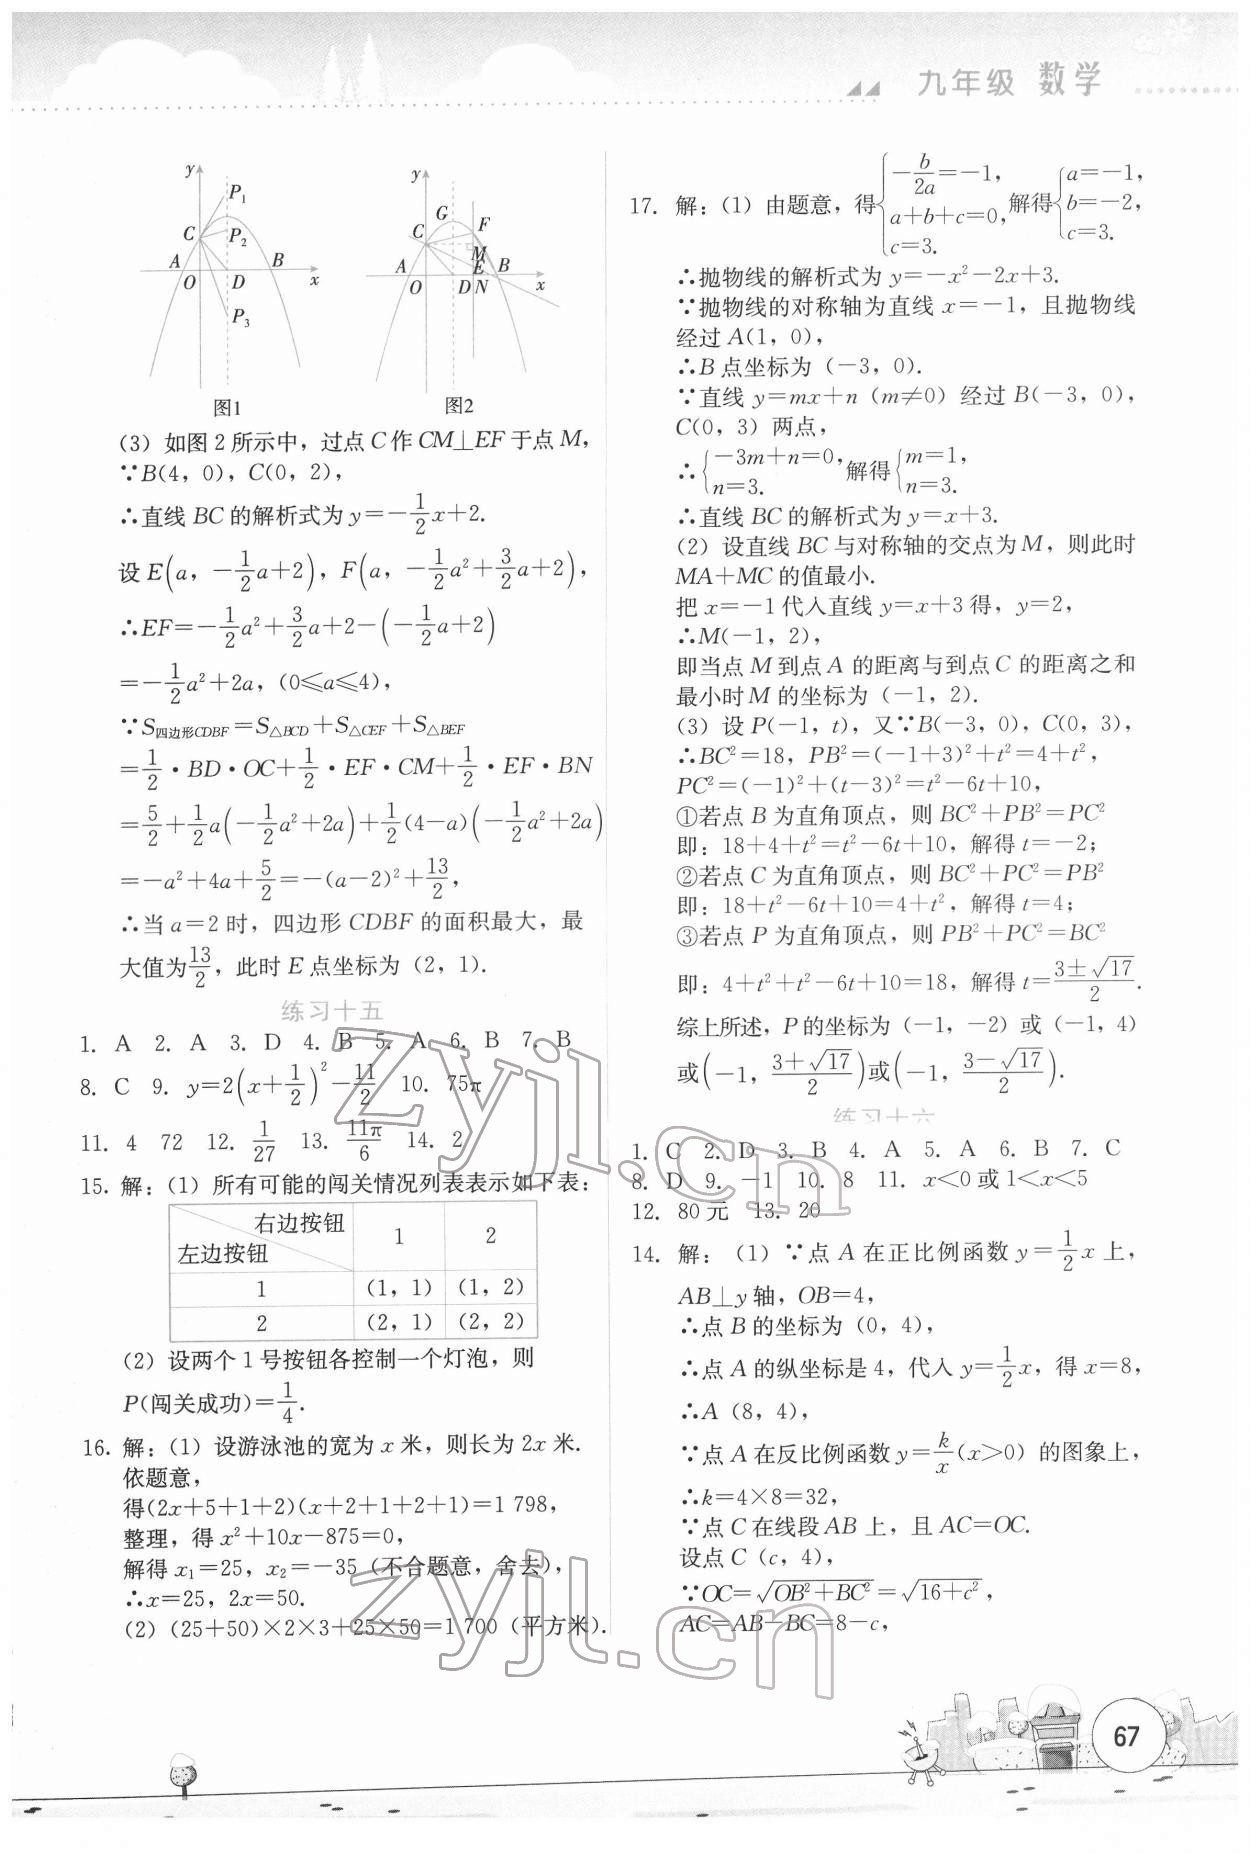 九年级 数学
y
P₁
C
P₂
A
B
O
D
x
P₃
图1
y
G
C
F
M
A
E
B
O
D N
x
图2
(3) 如图 2 所示中，过点 C 作 CM⊥EF 于点 M，
∵B(4，0)，C(0，2)，
∴直线 BC 的解析式为 y=-1/2x+2.
设 E(a，-1/2a+2)，F(a，-1/2a²+3/2a+2)，
∴EF=-1/2a²+3/2a+2-(-1/2a+2)
=-1/2a²+2a，(0≤a≤4)，
∵S四边形CDBF=S△BCD+S△CEF+S△BEF
=1/2·BD·OC+1/2·EF·CM+1/2·EF·BN
=5/2+1/2a(-1/2a²+2a)+1/2(4-a)(-1/2a²+2a)
=-a²+4a+5/2=-(a-2)²+13/2，
∴当 a=2 时，四边形 CDBF 的面积最大，最
大值为13/2，此时 E 点坐标为（2，1）.
练习十五
1. A 2. A 3. D 4. B 5. A 6. B 7. B
8. C 9. y=2(x+1/2)²-11/2 10. 75π
11. 4 72 12. 1/27 13. 11π/6 14. 2
15. 解：(1) 所有可能的闯关情况列表表示如下表：
右边按钮
左边按钮
1 2
1 (1，1) (1，2)
2 (2，1) (2，2)
(2) 设两个 1 号按钮各控制一个灯泡，则
P(闯关成功)=1/4.
16. 解：(1) 设游泳池的宽为 x 米，则长为 2x 米.
依题意，
得(2x+5+1+2)(x+2+1+2+1)=1 798，
整理，得 x²+10x-875=0，
解得 x₁=25，x₂=-35（不合题意，舍去），
∴x=25，2x=50.
(2) (25+50)×2×3+25×50=1 700（平方米）.
17. 解：(1) 由题意，得{-b/2a=-1，a+b+c=0，c=3. 解得{a=-1，b=-2，c=3.
∴抛物线的解析式为 y=-x²-2x+3.
∵抛物线的对称轴为直线 x=-1，且抛物线
经过 A(1，0)，
∴B 点坐标为（-3，0）.
∵直线 y=mx+n（m≠0）经过 B(-3，0)，
C(0，3) 两点，
∴{-3m+n=0，n=3. 解得{m=1，n=3.
∴直线 BC 的解析式为 y=x+3.
(2) 设直线 BC 与对称轴的交点为 M，则此时
MA+MC 的值最小.
把 x=-1 代入直线 y=x+3 得，y=2，
∴M(-1，2)，
即当点 M 到点 A 的距离与到点 C 的距离之和
最小时 M 的坐标为（-1，2）.
(3) 设 P(-1，t)，又∵B(-3，0)，C(0，3)，
∴BC²=18，PB²=(-1+3)²+t²=4+t²，
PC²=(-1)²+(t-3)²=t²-6t+10，
①若点 B 为直角顶点，则 BC²+PB²=PC²
即：18+4+t²=t²-6t+10，解得 t=-2；
②若点 C 为直角顶点，则 BC²+PC²=PB²
即：18+t²-6t+10=4+t²，解得 t=4；
③若点 P 为直角顶点，则 PB²+PC²=BC²
即：4+t²+t²-6t+10=18，解得 t=(3±√17)/2.
综上所述，P 的坐标为（-1，-2）或（-1，4）
或(-1，(3+√17)/2)或(-1，(3-√17)/2).
练习十六
1. C 2. D 3. B 4. A 5. A 6. B 7. C
8. D 9. -1 10. 8 11. x<0 或 1<x<5
12. 80 元 13. 20
14. 解：(1) ∵点 A 在正比例函数 y=1/2x 上，
AB⊥y 轴，OB=4，
∴点 B 的坐标为（0，4），
∴点 A 的纵坐标是 4，代入 y=1/2x，得 x=8，
∴A（8，4），
∵点 A 在反比例函数 y=k/x(x>0) 的图象上，
∴k=4×8=32，
∵点 C 在线段 AB 上，且 AC=OC.
设点 C（c，4），
∵OC=√(OB²+BC²)=√(16+c²)，
AC=AB-BC=8-c，
67
zyjl.cn
zyjl.cn